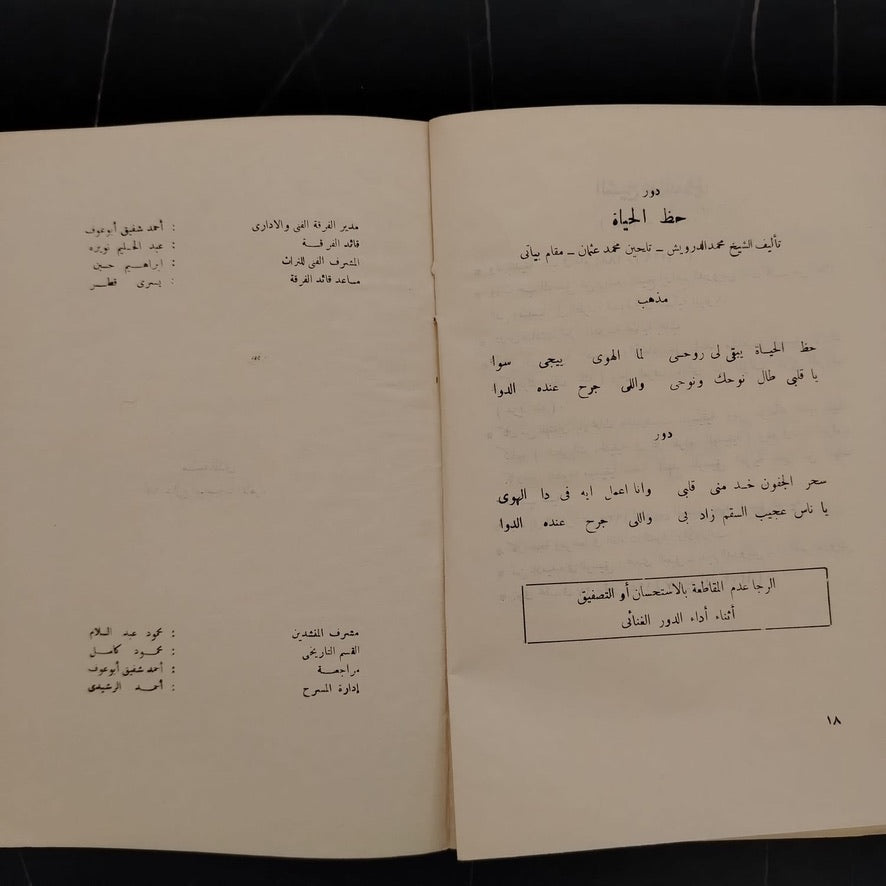 دور
حظ الحياة
تأليف الشيخ محمد الدرويش – تلحين محمد عثمان – مقام بياتى
مذهب
حظ الحياة يبقى لى روحى لما الهوى ييجى سوا
يا قلبى طال نوحك ونوحى واللى جرح عنده الدوا
دور
سحر الجفون خد منى قلبى وانا اعمل ايه فى دا الهوى
يا ناس عجيب السقم زاد بى واللى جرح عنده الدوا
الرجا عدم المقاطعة بالاستحسان أو التصفيق
أثناء أداء الدور الغنائى
١٨
مدير الفرقة الفنى والادارى : أحمد شفيق أبوعوف
قائد الفرقة : عبد الحليم نويره
المشرف الفنى للتراث : ابراهيم حسين
مساعد قائد الفرقة : يسرى قطر
مشرف المنشدين : محمود عبد السلام
القسم التاريخى : محمود كامل
مراجعة : أحمد شفيق أبوعوف
إدارة المسرح : أحمد الرشيدى